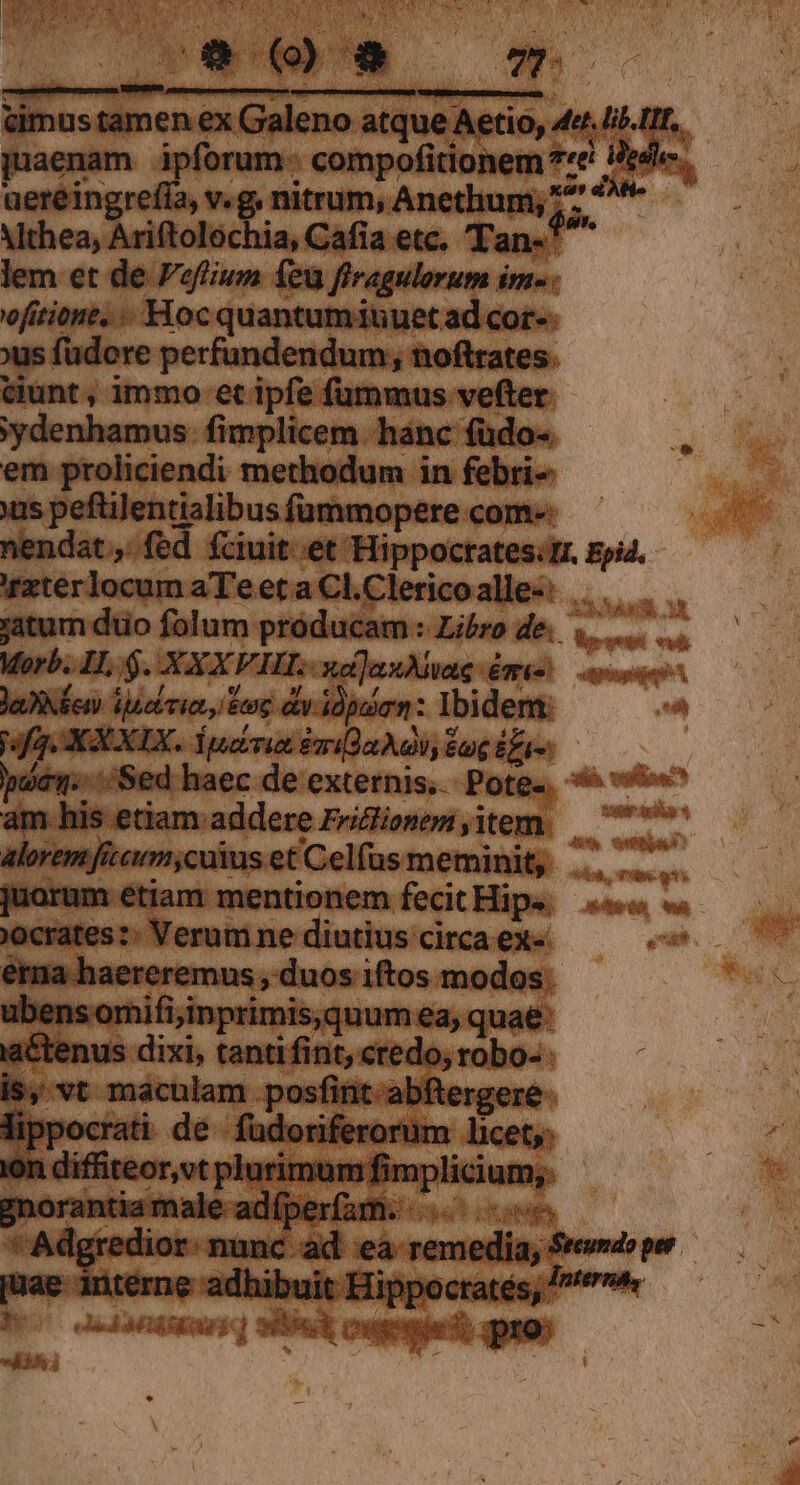 (o) 77
cimus tamen ex Galeno atque Aetio, Aet. lib. III.
quaenam ipſorum compoſitionem
aere ingreſſa, v. g. nitrum, Anethum,
Althea, Ariſtolochia, Caſia etc. Tan-
dem et de Veſtium ſeu ſtragulorum im-
oſitione. Hoc quantum iuuet ad cor-
us ſudore perfundendum, noſtrates
ciunt, immo et ipſe ſummus veſter
ydenhamus ſimplicem hanc ſudo-
em proliciendi methodum in febri-
us peſtilentialibus ſummopere com-
mendat, ſed ſciuit et Hippocrates. II. Epid.
raeter locum a Te et a Cl. Clerico alle-
gatum duo ſolum producam: Libro de
Morb. II, §. XXXVIII. κα]ακλίνας ἐπι-
ἱμάτια, ἕως ἀν ἱδρώση: Ibidem
XXXIX. ἱμάτια ἐπιβαλὼν, ἕως ἐξι-
Sed haec de externis. Pote-
am his etiam addere Frictionem, item
alorem ſiccum, cuius et Celſus meminit,
quorum etiam mentionem fecit Hip-
ocrates: Verum ne diutius circa ex-
erna haereremus, duos iſtos modos
ubens omiſi, inprimis, quum ea, quae
actenus dixi, tanti ſint, credo, robo-
is, vt maculam posſint abſtergere
Hippocrati de ſudoriferorum licet,
on diffiteor, vt plurimum ſimplicium,
gnorantia male adſperſam.
Adgredior nunc ad ea remedia, Secundo per
quae interne adhibuit Hippocrates, Interna,
pro